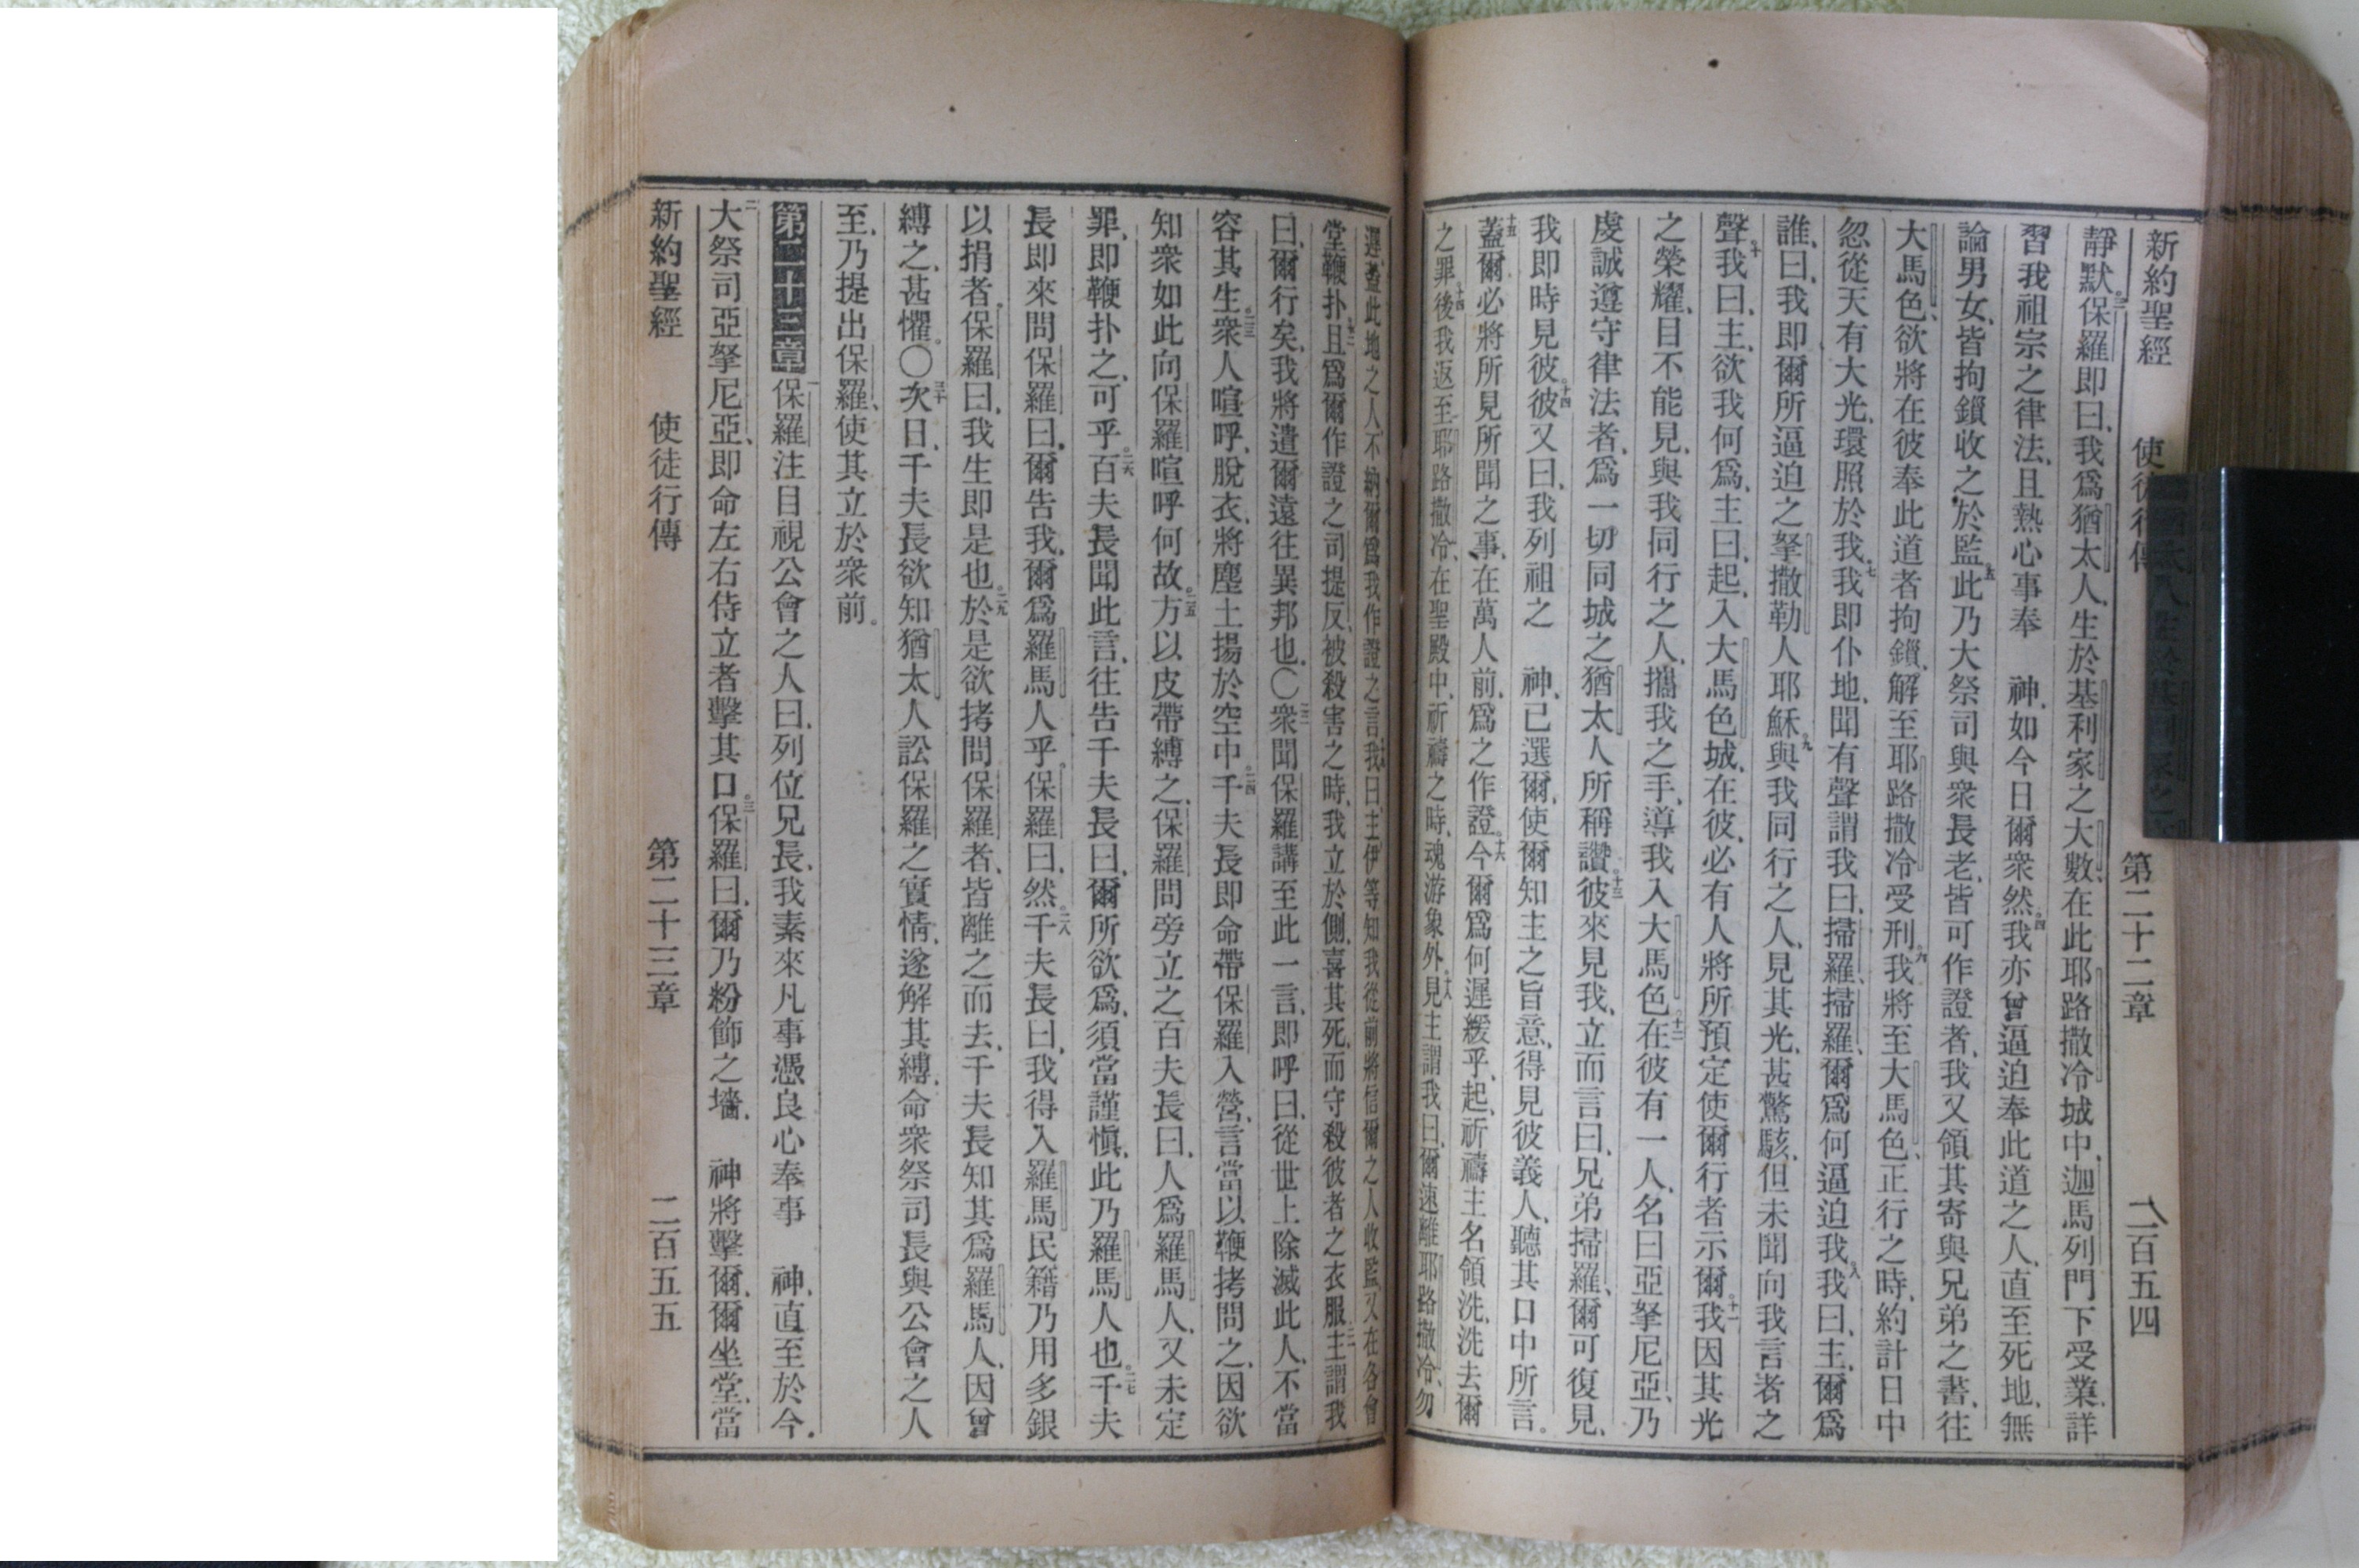 新約聖經 使徒行傳 第二十二章 二百五四
靜默、三保羅即曰、我爲猶太人、生於基利家之大數、在此耶路撒冷城中、迦馬列門下受業、詳
習我祖宗之律法、且熱心事奉 神、如今日爾衆然。四我亦曾逼迫奉此道之人、直至死地、無
論男女、皆拘鎖收之於監、五此乃大祭司與衆長老、皆可作證者、我又領其寄與兄弟之書、往
大馬色、欲將在彼奉此道者拘鎖、解至耶路撒冷受刑。六我將至大馬色、正行之時、約計日中
忽從天有大光、環照於我、七我即仆地、聞有聲謂我曰、掃羅、掃羅、爾爲何逼迫我、八我曰、主、爾爲
誰、曰、我即爾所逼迫之拏撒勒人耶穌。九與我同行之人、見其光、甚驚駭、但未聞向我言者之
聲。十我曰、主、欲我何爲、主曰、起、入大馬色城、在彼、必有人將所預定使爾行者示爾。十一我因其光
之榮耀、目不能見、與我同行之人、攜我之手、導我入大馬色。十二在彼有一人、名曰亞拏尼亞、乃
虔誠遵守律法者、爲一切同城之猶太人所稱讚。十三彼來見我、立而言曰、兄弟掃羅、爾可復見、
我即時見彼。十四彼又曰、我列祖之 神、已選爾、使爾知主之旨意、得見彼義人、聽其口中所言。
十五蓋爾必將所見所聞之事、在萬人前、爲之作證。十六今爾爲何遲緩乎、起、祈禱主名領洗、洗去爾
之罪。後我返至耶路撒冷、在聖殿中、祈禱之時、魂游象外、十八見主謂我曰、爾速離耶路撒冷、勿
遲、蓋此地之人、不納爾爲我作證之言、我曰、主、伊等知我從前將信爾之人收監、又在各會
堂鞭扑、二十且爲爾作證之司提反、被殺害之時、我立於側、喜其死、而守殺彼者之衣服、主謂我
曰、爾行矣、我將遣爾遠往異邦也。〇二二衆聞保羅講至此一言、即呼曰、從世上除滅此人、不當
容其生。二三衆人喧呼、脫衣、將塵土揚於空中。二四千夫長即命帶保羅入營、言當以鞭拷問之、因欲
知衆如此向保羅喧呼何故。二五方以皮帶縛之、保羅問旁立之百夫長曰、人爲羅馬人、又未定
罪、即鞭扑之、可乎。二六百夫長聞此言、往告千夫長曰、爾所欲爲、須當謹愼、此乃羅馬人也。二七千夫
長即來問保羅曰、爾告我、爾爲羅馬人乎、保羅曰、然。二八千夫長曰、我得入羅馬民籍、乃用多銀
以捐者、保羅曰、我生即是也。二九於是欲拷問保羅者、皆離之而去、千夫長知其爲羅馬人、因曾
縛之、甚懼。〇三十次日、千夫長欲知猶太人訟保羅之實情、遂解其縛、命衆祭司長與公會之人
至、乃提出保羅、使其立於衆前。
第二十三章 一保羅注目視公會之人曰、列位兄長、我素來凡事憑良心奉事 神、直至於今、
二大祭司亞拏尼亞、即命左右侍立者擊其口。三保羅曰、爾乃粉飾之墻、 神將擊爾、爾坐堂、當
新約聖經 使徒行傳 第二十三章 二百五五